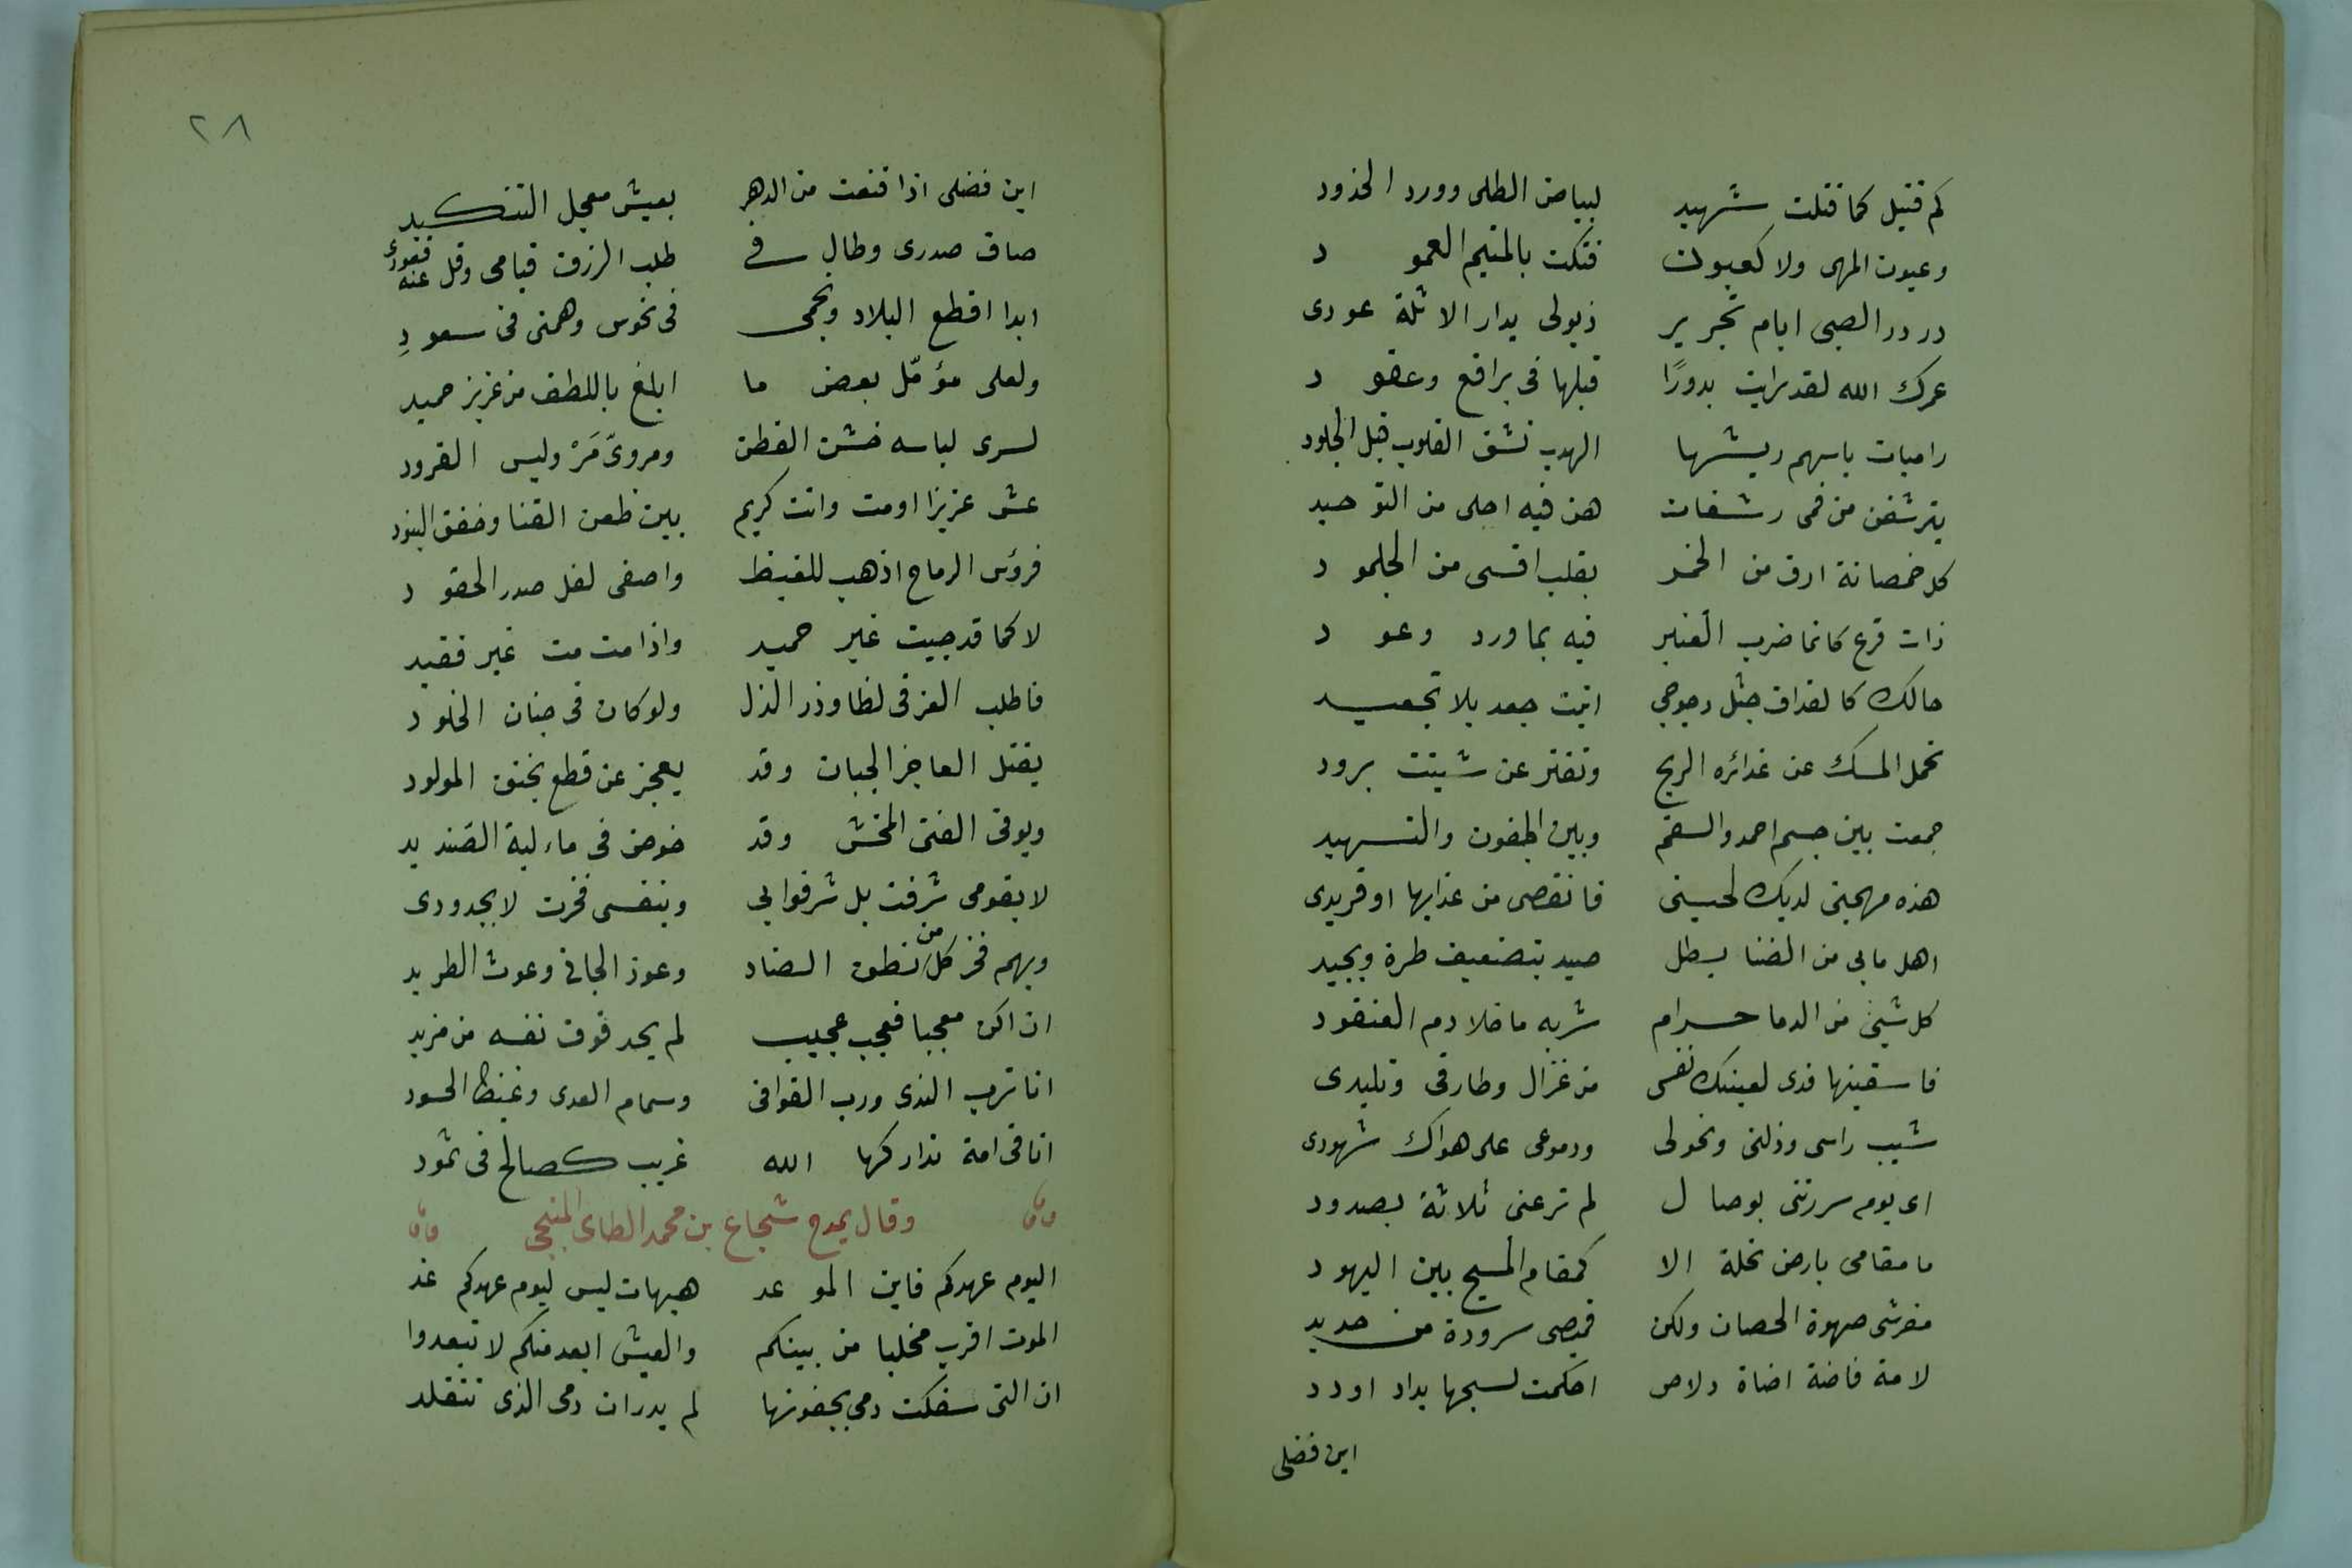 كم قتيل كما قتلت شهيد لبياض الطلى وورد الخدود
وعيون المهى ولا كعيون فتكت بالمتيم العمود
در در الصبى ايام تجرير ذيولى بدار الاثلة عودى
عمرك الله لقد رايت بدورًا قبلها فى براقع وعقود
راميات باسهم ريشها الهدب تشق القلوب قبل الجلود
يترشفن من فمى رشفات هن فيه احلى من التوحيد
كل خمصانة ارق من الخمر بقلب اقسى من الجلمود
ذات فرع كانما ضرب العنبر فيه بماورد وعود
حالك كالغداف جثل دجوجي اثيت جعد بلا تجعيد
تحمل المسك عن غدائره الريح وتفتر عن شيتت برود
جمعت بين جسم احمد والسقم وبين الجفون والتسهيد
هذه مهجتى لديك لحينى فانقصى من عذابها او فزيدى
اهل مابي من الضنا بطل صيد بتضفيف طرة وبجيد
كل شيئ من الدما حرام شربه ما خلا دم العنقود
فاسقينها فدى لعينيك نفسى من غزال وطارفى وتليدى
شيب راسى وذلتى ونحولى ودموعى على هواك شهودى
اى يوم سررتنى بوصال لم ترعنى ثلاثة بصدود
ما مقامى بارض نخلة الا كمقام المسيح بين اليهود
مفرشى صهوة الحصان ولكن قميصى سرودة من حديد
لامة فاضة اضاة دلاص احكمت نسجها يداد اودد
اين فضلى
٢٨
اين فضلى اذا قنعت من الدهر بعيش معجل التنكيد
ضاق صدرى وطال فى طلب الرزق قيامى وقل عنه قعودى
ابدا اقطع البلاد ونجمى فى نحوس وهمتى فى سعودِ
ولعلى مؤمّل بعض ما ابلغ باللطف من عزيز حميد
لسرى لباسه خشن القطن ومروىّ مَرْ وليس القرود
عش عزيزا اومت وانت كريم بين طعن القنا وخفق البنود
فرؤس الرماح اذهب للغيظ واصفى لغل صدر الحقود
لا كما قد حييت غير حميد واذا مت مت غير فقيد
فاطلب العز فى لظا وذر الذل ولو كان فى جنان الخلود
يقتل العاجز الجبان وقد يعجز عن قطع بخنق المولود
ويوقى الفتى المخش وقد خوض فى ماء لبة الصنديد
لا بقومى شرفت بل شرفوا بي وبنفسى فخرت لا بجدودى
وبهم فخر كل من نطق الضاد وعوذ الجانى وغوث الطريد
ان اكن معجبا فعجب عجيب لم يجد فوق نفسه من مزيد
انا ترب الندى ورب القوافى وسمام العدى وغيظ الحسود
انا فى امة تداركها الله غريب كصالح فى ثمود
وقال يمدح شجاع بن محمد الطاى المنبجى
اليوم عهدكم فاين الموعد هيهات ليس ليوم عهدكم غد
الموت اقرب مخلبا من بينكم والعيش ابعد منكم لا تبعدوا
ان التى سفكت دمى بجفونها لم يدر ان دمى الذى تتقلد